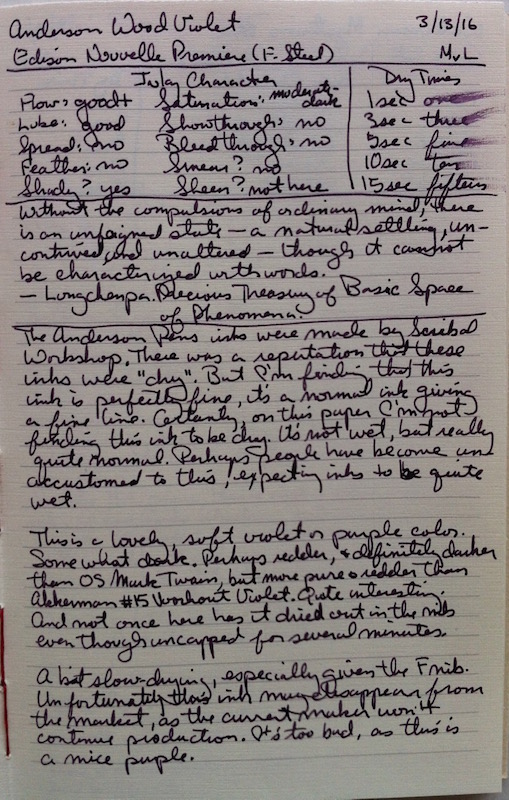 Anderson Wood Violet 3/13/16
Edison Nouvelle Premiere (F. Steel) MvL
Inky Character Dry Times
Flow: good+ Saturation: moderate-dark 1sec one
Lube: good Showthrough: no 3sec three
Spread: no Bleedthrough: no 5sec five
Feather: no Smear? no 10sec ten
Shady? yes Sheen? not here 15sec fifteen
Without the compulsions of ordinary mind, there
is an unfeigned state — a natural settling, un-
contrived and unaltered — though it cannot
be characterized with words.
— Longchenpa. Precious Treasury of Basic Space
of Phenomena.
The Anderson Pens inks were made by Scribal
Workshop. There was a reputation that these
inks were "dry". But I'm finding that this
ink is perfectly fine, it's a normal ink giving
a fine line. Certainly, on this paper I'm not
finding this ink to be dry. It's not wet, but really
quite normal. Perhaps people have become un
accustomed to this, expecting inks to be quite
wet.
This is a lovely, soft violet or purple color.
Somewhat dark. Perhaps redder, & definitely darker
than OS Mark Twain, but more pure & redder than
Akkerman #15 Voorhout Violet. Quite interesting.
And not once here has it dried out in the nib
even though uncapped for several minutes.
A bit slow-drying, especially given the F nib.
Unfortunately this ink may disappear from
the market, as the current maker won't
continue production. It's too bad, as this is
a nice purple.